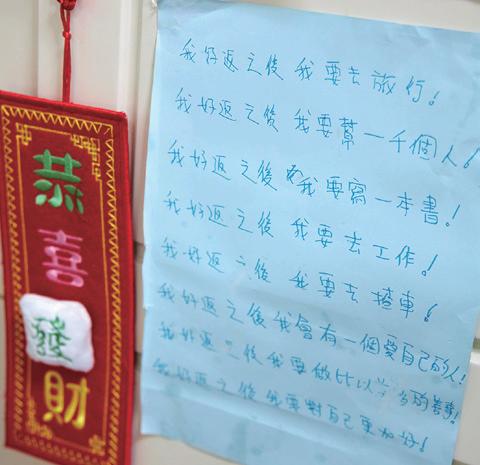 恭喜發財
我好返之後 我要去旅行!
我好返之後 我要幫一千個人!
我好返之後 我要寫一本書!
我好返之後 我要去工作!
我好返之後 我要去揸車!
我好返之後我會有一個愛自己的人!
我好返之後我要做比以前多的善事!
我好返之後我要對自己更加好!